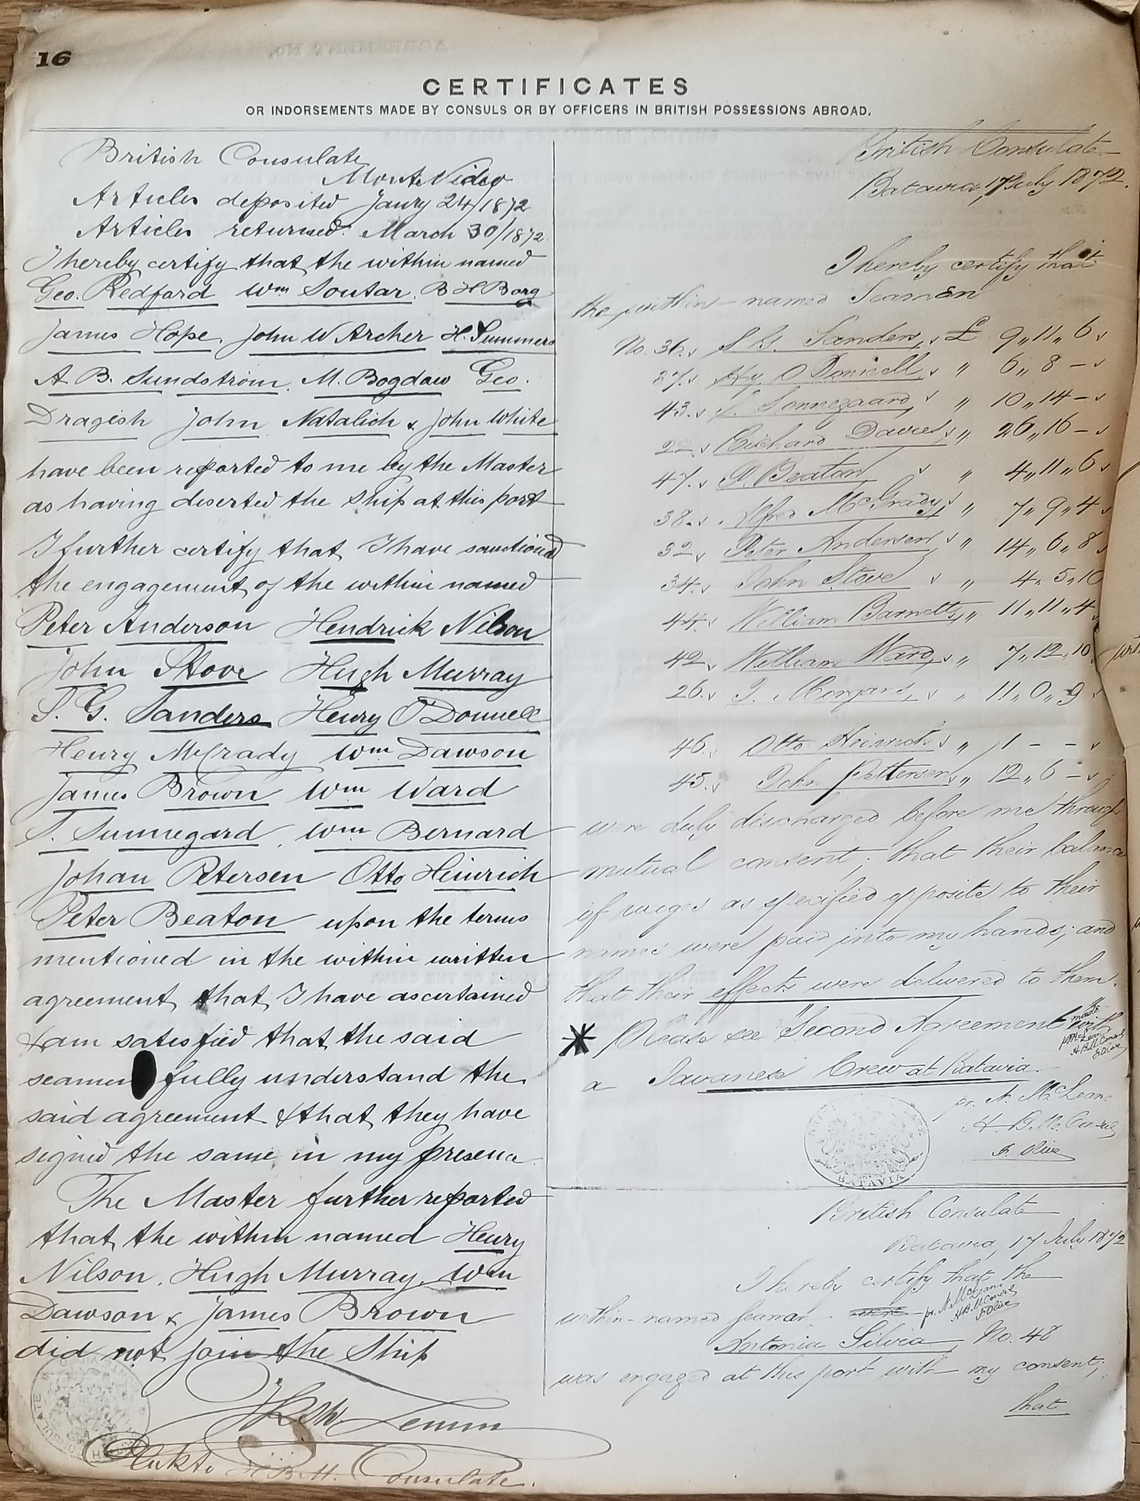 16
CERTIFICATES
OR INDORSEMENTS MADE BY CONSULS OR BY OFFICERS IN BRITISH POSSESSIONS ABROAD.
British Consulate
Monte Video
Articles deposited Jany 24/1872
Articles returned March 30/1872
I hereby certify that the within named
Geo. Redford Wm Soutar, B H Borg
James Hope, John W Archer H. Summers
A. B. Sundstrom, M. Bogdaw Geo.
Dragish John Natalich & John White
have been reported to me by the Master
as having deserted the ship at this port
I further certify that I have sanctioned
the engagement of the within named
Peter Anderson Hendrick Nilson
John Stove Hugh Murray
S. G. Sanders Henry O'Donnell
Henry McCrady Wm Dawson
James Brown Wm Ward
S. Sunnegard, Wm Bernard
Johan Petersen Otto Heinrich
Peter Beaton upon the terms
mentioned in the within written
agreement, that I have ascertained
& am satisfied that the said
seamen fully understand the
said agreement & that they have
signed the same in my presence
The Master further reported
that the within named Henry
Nilson, Hugh Murray, Wm
Dawson & James Brown
did not join the Ship
H.B.M. Consulate.
British Consulate
Batavia, 17 July 1872.
I hereby certify that
the within-named Seamen
No. 36. S G. Sanders, £ 9,, 11,, 6
37. Hy O'Donnell, ,, 6,, 8 -
43. S. Sonnegaard, ,, 10,, 14 -
22. Richard Davies, ,, 26,, 16 -
47. P. Beaton, ,, 4,, 11,, 6
38. Alfred McGrady, ,, 7,, 9,, 4
32. Peter Andersen, ,, 14,, 6,, 8
34. John Stove ,, 4,, 5,, 10
44. William Barnett, ,, 11,, 11,, 4
42. William Ward, ,, 7,, 12,, 10
26. J. Morgan, ,, 11,, 0,, 9
46. Otto Heinrich ,, 1 - -
45. John Pettersen, ,, 12,, 6 -
were duly discharged before me through
mutual consent; that their balance
of wages as specified opposite to their
names were paid into my hands; and
that their effects were delivered to them.
* Please see "Second Agreement" with
a Javanese Crew at Batavia.
pr. N. McLeane
H. B. M. Consul
BATAVIA
British Consulate
Batavia, 17 July 1872
I hereby certify that the
within-named Seaman
Antonia Silvia, No. 48
was engaged at this port with my consent;
that